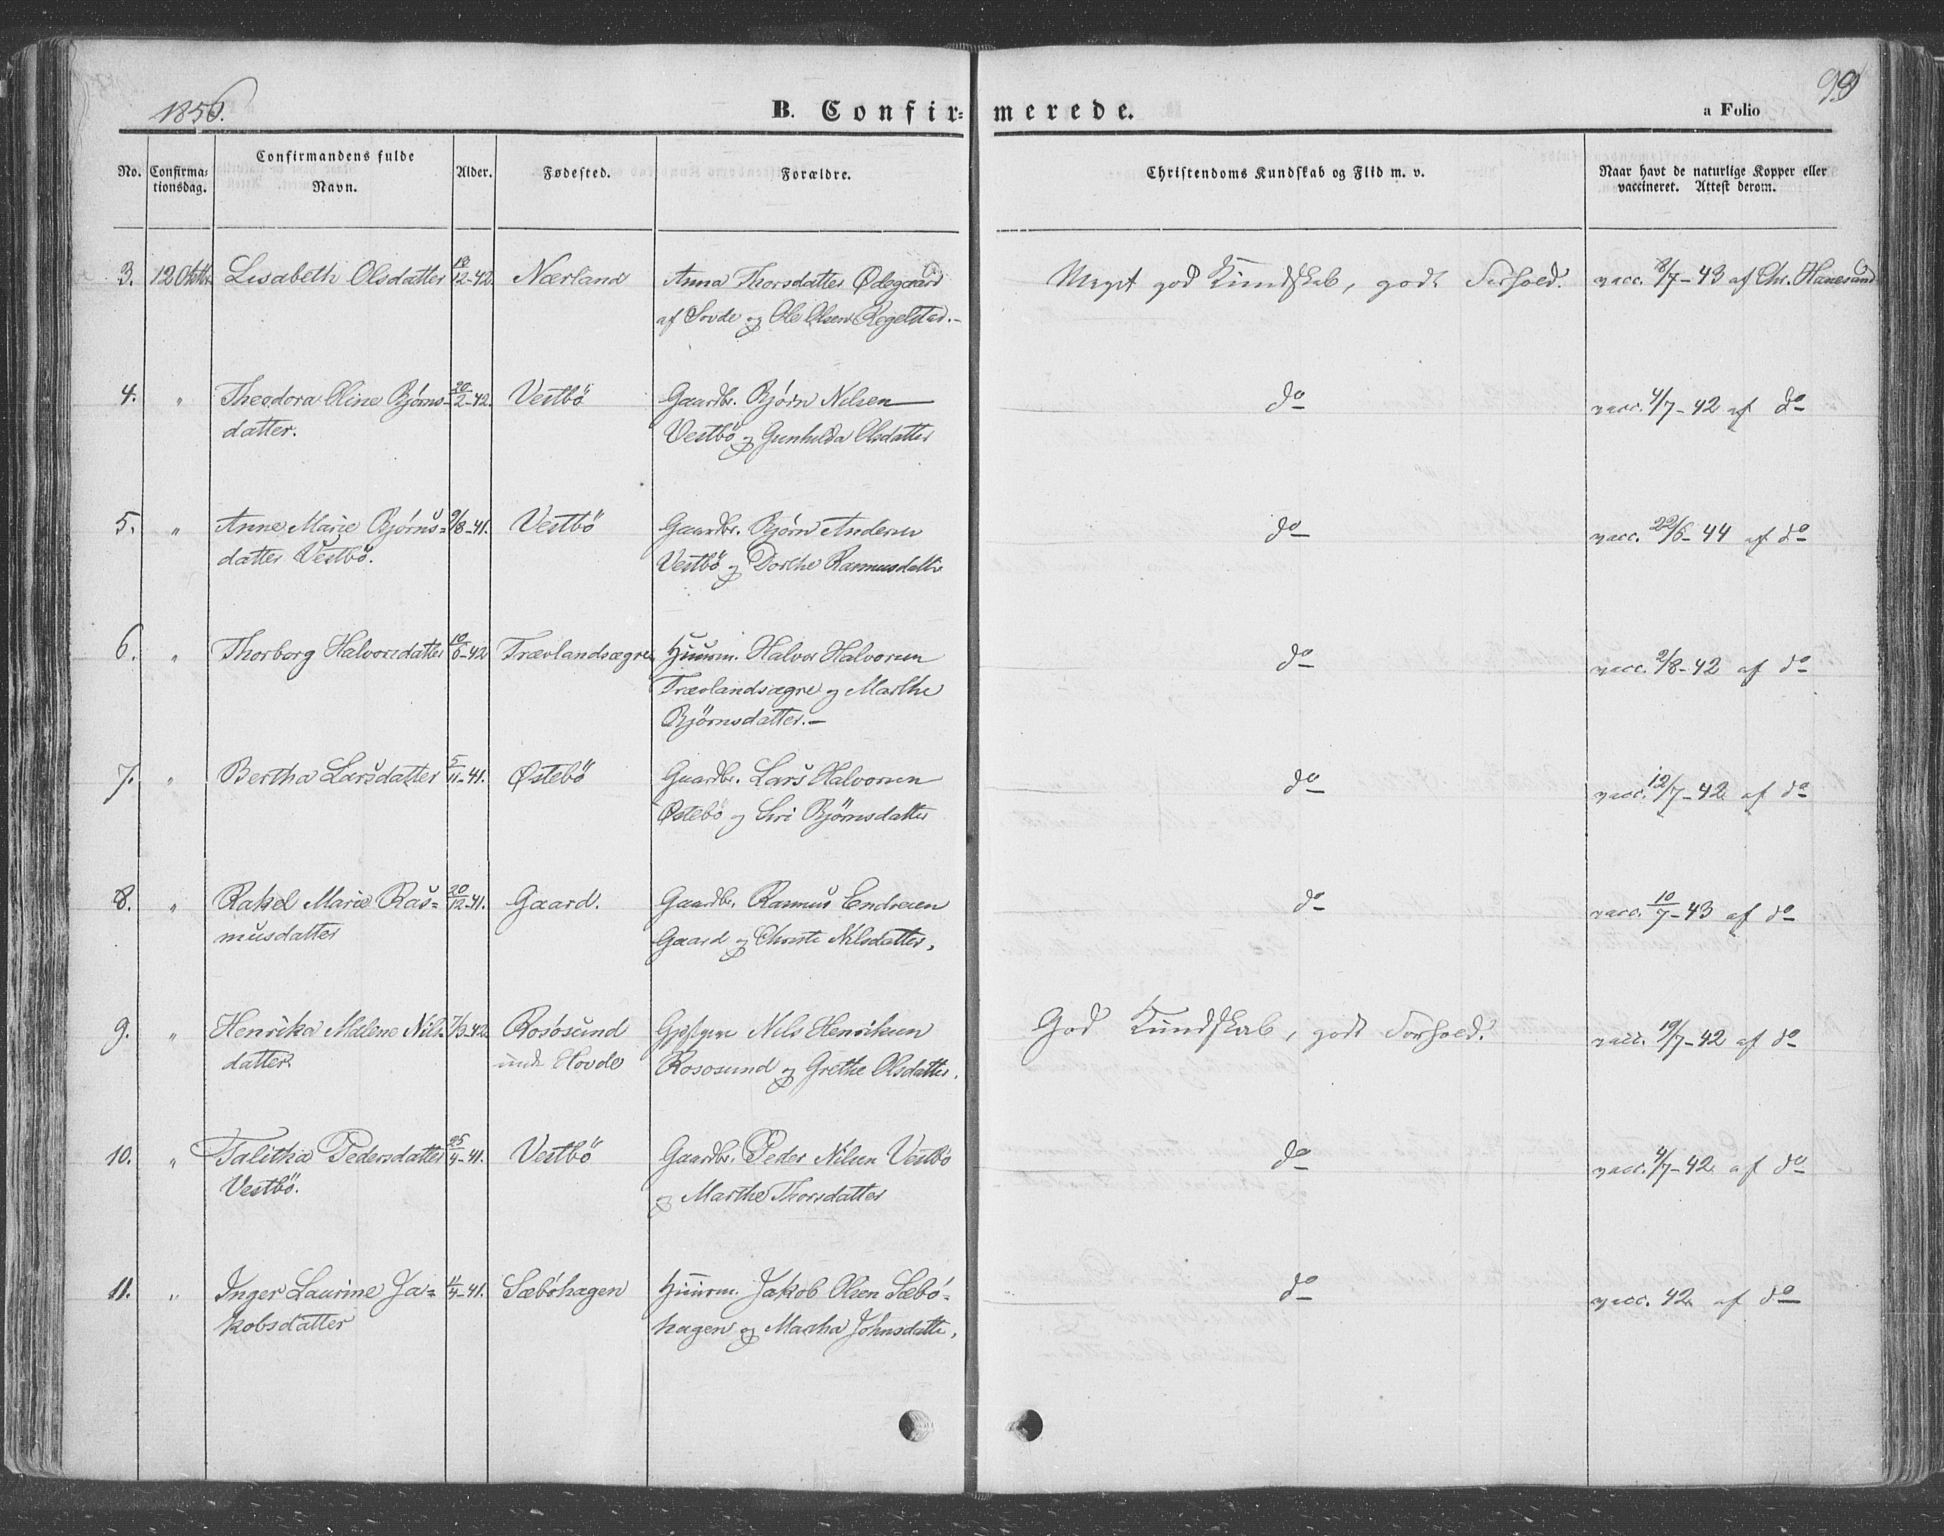 1856.
B. Confirmerede.
a Folio
99
No.
Confirmationsdag.
Confirmandens fulde Navn.
Alder.
Fødested.
Forældre.
Christendoms Kundskab og Flid m. v.
Naar havt de naturlige Kopper eller vaccineret. Attest derom.
3. 12 Octbr. Lisabeth Olsdatter 18/12-42. Nærland Anna Thorsdatter Ødegaard Meget god Kundskab, godt Forhold. vacc. 8/7-43 af Chr. Hanesund
af Sovde og Ole Olsen Regelstad.-
4. " Theodora Oline Bjørns- 20/2-42. Vestbö Gaardbr. Bjørn Nilsen do vacc. 4/7-42 af do
datter. Vestbö og Gunhilda Olsdatter
5. " Anne Marie Bjørns= 9/8-41. Vestbö Gaardbr. Bjørn Andersen do vacc. 22/6-44 af do
datter Vestbö. Vestbö og Dorthe Rasmusdatter
6. " Thorborg Halvorsdatter 10/6-42 Trævlandsægre Huusm. Halvor Halvorsen do vacc. 2/8-42 af do
Trævlandsægre og Marthe
Björnsdatter.-
7. " Bertha Larsdatter 5/11-41. Østebö Gaardbr. Lars Halvorsen do vacc. 12/7-42 af do
Østebö og Siri Bjørnsdatter
8. " Rakel Marie Ras= 20/12-41. Gaard. Gaardbr. Rasmus Endresen do vacc. 10/7-43 af do
musdatter Gaard og Christi Nilsdatter,
9. " Henrika Malene Nils- 7/3-42 Rosøsund Nils Henriksen God Kundskab, godt Forhold. vacc. 19/7-42 af do
datter. Hovde Rososund og Grethe Olsdatter.
10. " Talitha Pedersdatter 25/4-41. Vestbö Gaardbr. Peder Nilsen Vestbö do vacc. 4/7-42 af do
Vestbö. og Marthe Thorsdatter
11. " Inger Laurine Ja= 11/4-41. Sæböhagen Huusm. Jakob Olsen Sæbö- do vacc. 42 af do
kobsdatter hagen og Martha Johnsdatter,